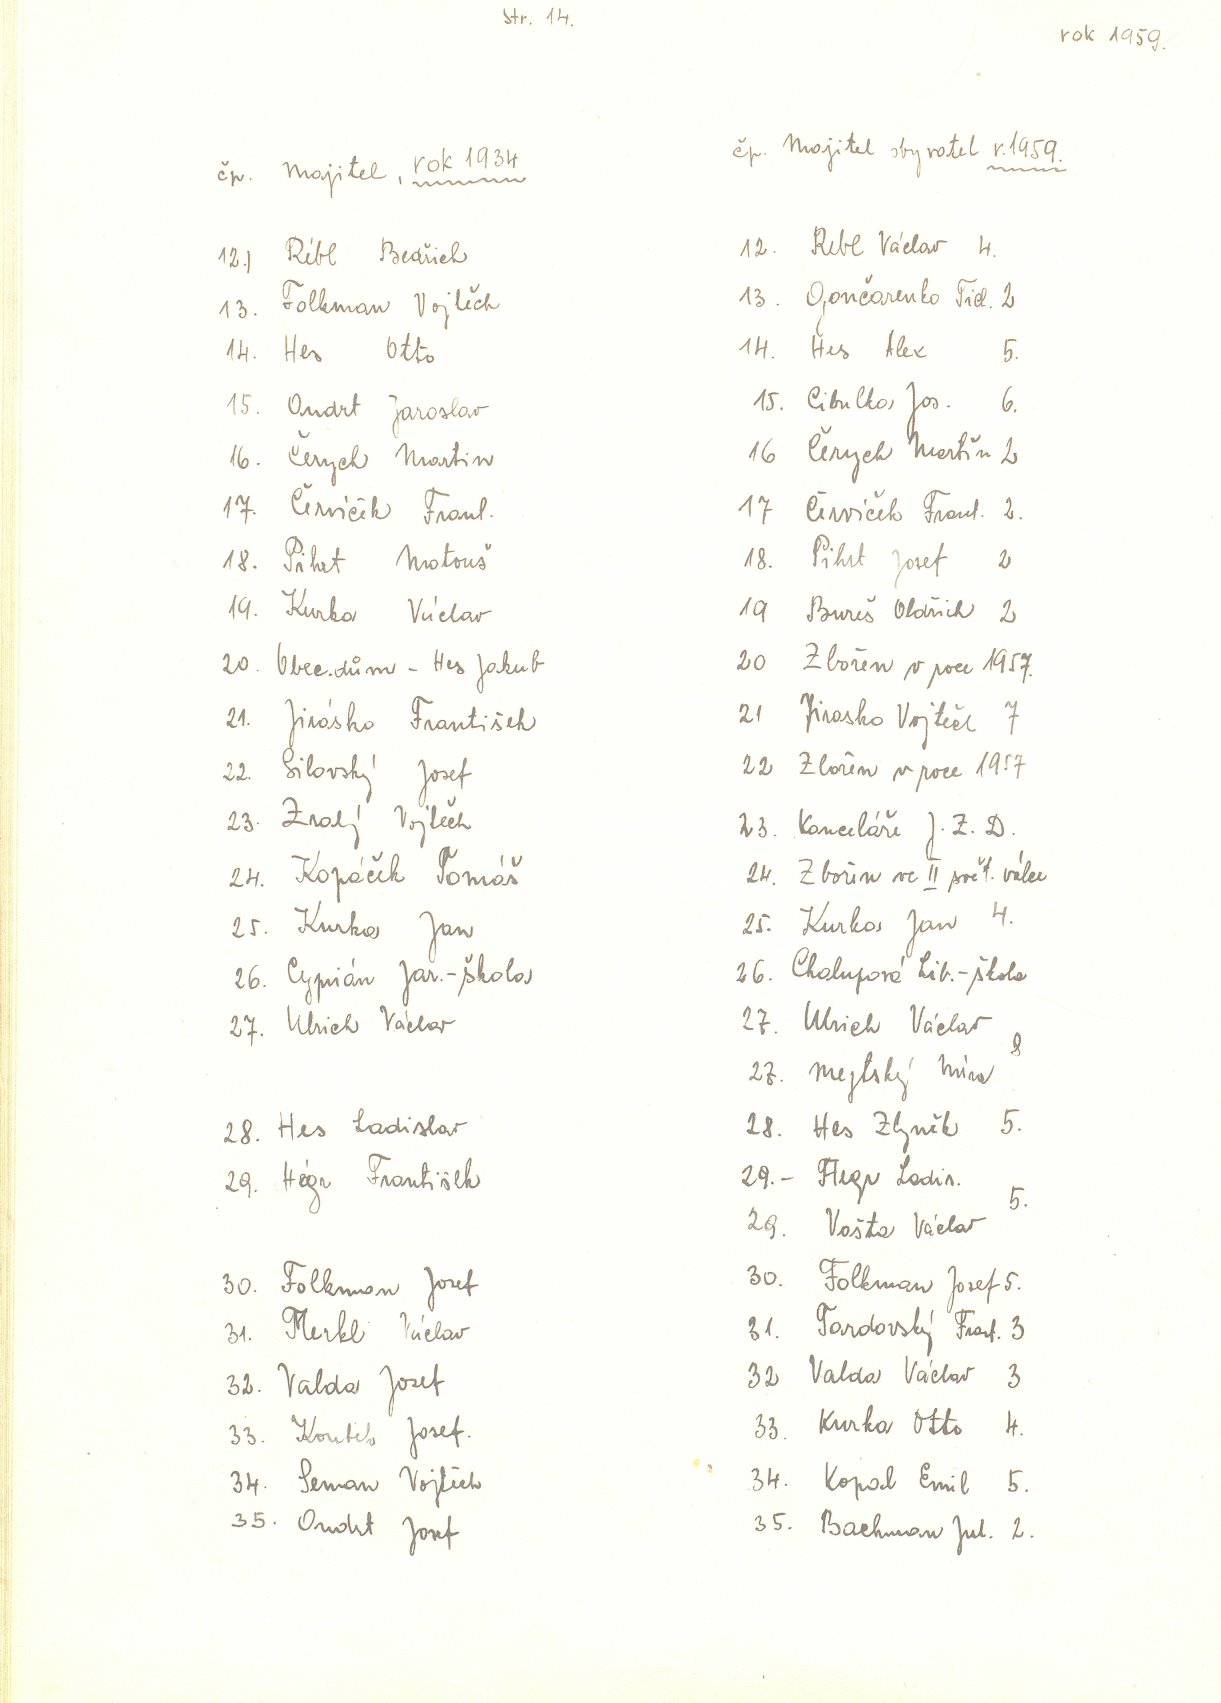 str. 14.
rok 1959.
čp. Majitel, rok 1934
12.) Rébl Bedřich
13. Folkman Vojtěch
14. Hes Otto
15. Ondrt Jaroslav
16. Černych Martin
17. Červíček Frant.
18. Pihrt Matouš
19. Kurka Václav
20. Obec.dům - Hes Jakub
21. Jirásko František
22. Silovský Josef
23. Zralý Vojtěch
24. Kopáček Tomáš
25. Kurka Jan
26. Cyprián Jar.-škola
27. Ulrich Václav
28. Hes Ladislav
29. Hégr František
30. Folkman Josef
31. Merkl Václav
32. Valda Josef
33. Josef.
34. Seman Vojtěch
35. Ondrt Josef
čp. Majitel obyvatel r.1959.
12. Rebl Václav 4.
13. Gončarenko 2
14. Hes Alex 5.
15. Cibulka Jos. 6.
16 Černych Martin 2
17 Červíček Frant. 2.
18. Pihrt Josef 2
19 Bureš Oldřich 2
20 Zbořen v roce 1957.
21 Jirasko Vojtěch 7
22 Zbořen v roce 1957
23. Kanceláře J.Z.D.
24. Zbořen ve II svět. válce
25. Kurka Jan 4.
26. Chalupová Lib.-škola
27. Ulrich Václav
8
27. Mejtský Míra
28. Hes Zbyněk 5.
29.- Hegr Ladis.
5.
29. Vašta Václav
30. Folkman Josef 5.
31. Tardovský Frant. 3
32 Valda Václav 3
33. Kurka Otto 4.
34. Kopal Emil 5.
35. Bachman Jul. 2.